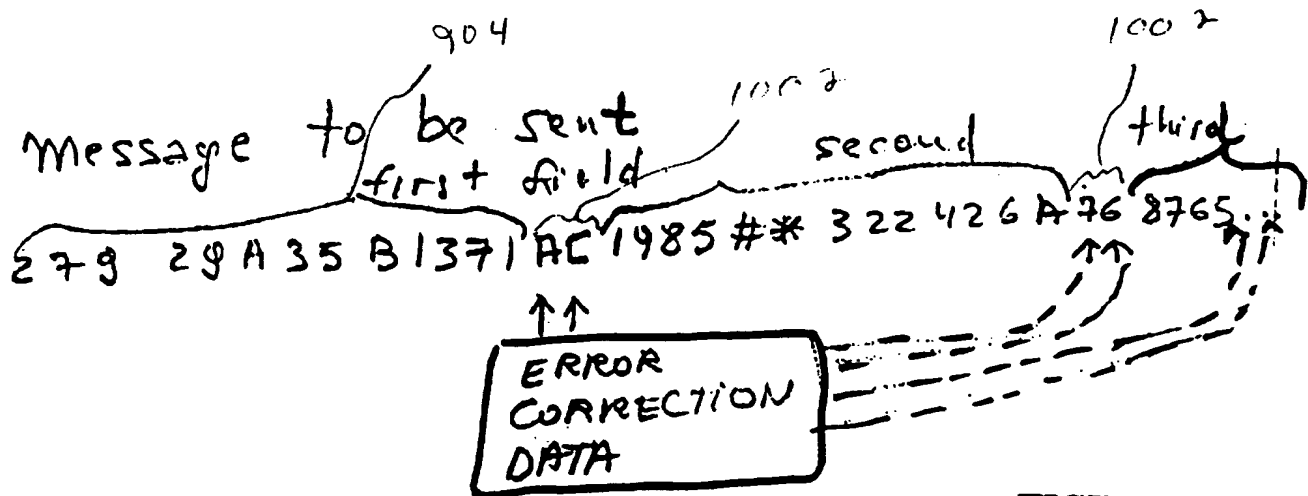 904
1002
1002
Message to be sent
first field
second
third
279 29A35B1371AC1985#*322426A768765..x
ERROR
CORRECTION
DATA